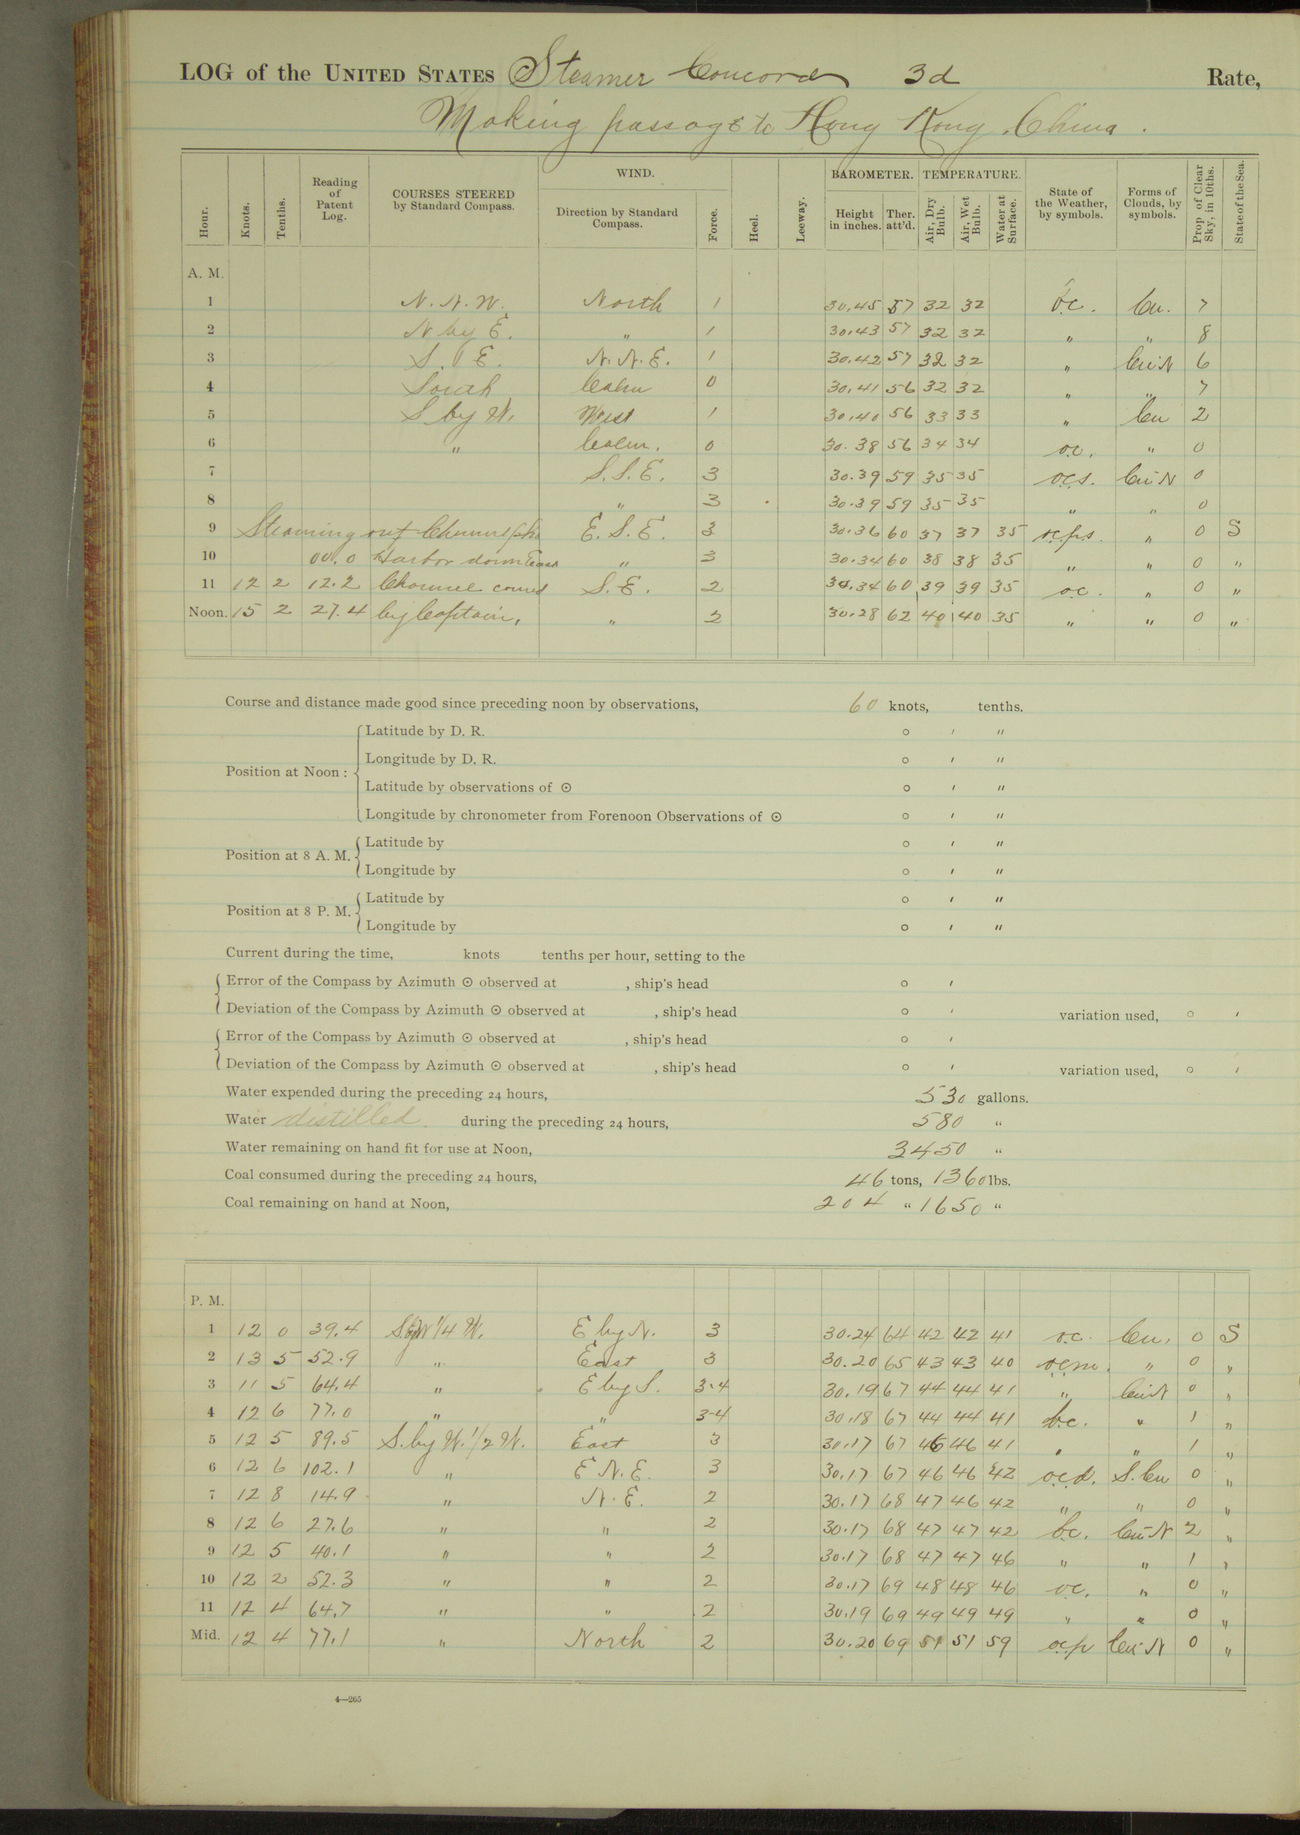 LOG of the UNITED STATES Steamer Concord 3d Rate,
Making passage to Hong Kong, China.
Hour. Knots. Tenths. Reading of Patent Log. COURSES STEERED by Standard Compass. WIND. Direction by Standard Compass. Force. Heel. Leeway. BAROMETER. Height in inches. Ther. att'd. TEMPERATURE. Air, Dry Bulb. Air, Wet Bulb. Water at Surface. State of the Weather, by symbols. Forms of Clouds, by symbols. Prop of Clear Sky, in 10ths. State of the Sea.
A. M.
1 N. N. W. North 1 30.45 57 32 32 b.c. Cu. 7
2 N by E. " 1 30.43 57 32 32 " " 8
3 S. E. N. N. E. 1 30.42 57 32 32 " Cu-N 6
4 South Calm 0 30.41 56 32 32 " " 7
5 S by W. West 1 30.40 56 33 33 " Cu 2
6 " Calm. 0 30.38 56 34 34 o.c. " 0
7 S. S. E. 3 30.39 59 35 35 o.c.s. Cu-N 0
8 " 3 30.39 59 35 35 " " 0
9 Steaming out Chemulpho E. S. E. 3 30.36 60 37 37 35 o.c.p.s. " 0 S
10 00.0 Harbor down East " 3 30.34 60 38 38 35 " " 0 "
11 12 2 12.2 Channel conned S. E. 2 30.34 60 39 39 35 o.c. " 0 "
Noon. 15 2 27.4 by Captain, " 2 30.28 62 40 40 35 " " 0 "
Course and distance made good since preceding noon by observations, 60 knots, tenths.
Position at Noon:
Latitude by D. R. ° ′ ″
Longitude by D. R. ° ′ ″
Latitude by observations of ☉ ° ′ ″
Longitude by chronometer from Forenoon Observations of ☉ ° ′ ″
Position at 8 A. M.
Latitude by ° ′ ″
Longitude by ° ′ ″
Position at 8 P. M.
Latitude by ° ′ ″
Longitude by ° ′ ″
Current during the time, knots tenths per hour, setting to the
Error of the Compass by Azimuth ☉ observed at , ship's head ° ′
Deviation of the Compass by Azimuth ☉ observed at , ship's head ° ′ variation used, ° ′
Error of the Compass by Azimuth ☉ observed at , ship's head ° ′
Deviation of the Compass by Azimuth ☉ observed at , ship's head ° ′ variation used, ° ′
Water expended during the preceding 24 hours, 530 gallons.
Water distilled during the preceding 24 hours, 580 "
Water remaining on hand fit for use at Noon, 3450 "
Coal consumed during the preceding 24 hours, 46 tons, 1360 lbs.
Coal remaining on hand at Noon, 204 " 1650 "
P. M.
1 12 0 39.4 SbyW 1/4 W. E by N. 3 30.24 64 42 42 41 o.c. Cu. 0 S
2 13 5 52.9 " East 3 30.20 65 43 43 40 o.c.m. " 0 "
3 11 5 64.4 " E by S. 3-4 30.19 67 44 44 41 " Cu-N 0 "
4 12 6 77.0 " " 3-4 30.18 67 44 44 41 b.c. " 1 "
5 12 5 89.5 S. by W. 1/2 W. East 3 30.17 67 46 46 41 " " 1 "
6 12 6 102.1 " E N. E. 3 30.17 67 46 46 42 o.c.d. S. Cu 0 "
7 12 8 14.9 " N. E. 2 30.17 68 47 46 42 " " 0 "
8 12 6 27.6 " " 2 30.17 68 47 47 42 b.c. Cu-N 2 "
9 12 5 40.1 " " 2 30.17 68 47 47 46 " " 1 "
10 12 2 52.3 " " 2 30.17 69 48 48 46 o.c. " 0 "
11 12 4 64.7 " " 2 30.19 69 49 49 49 " " 0 "
Mid. 12 4 77.1 " North 2 30.20 69 51 51 59 o.c.p Cu-N 0 "
4—265